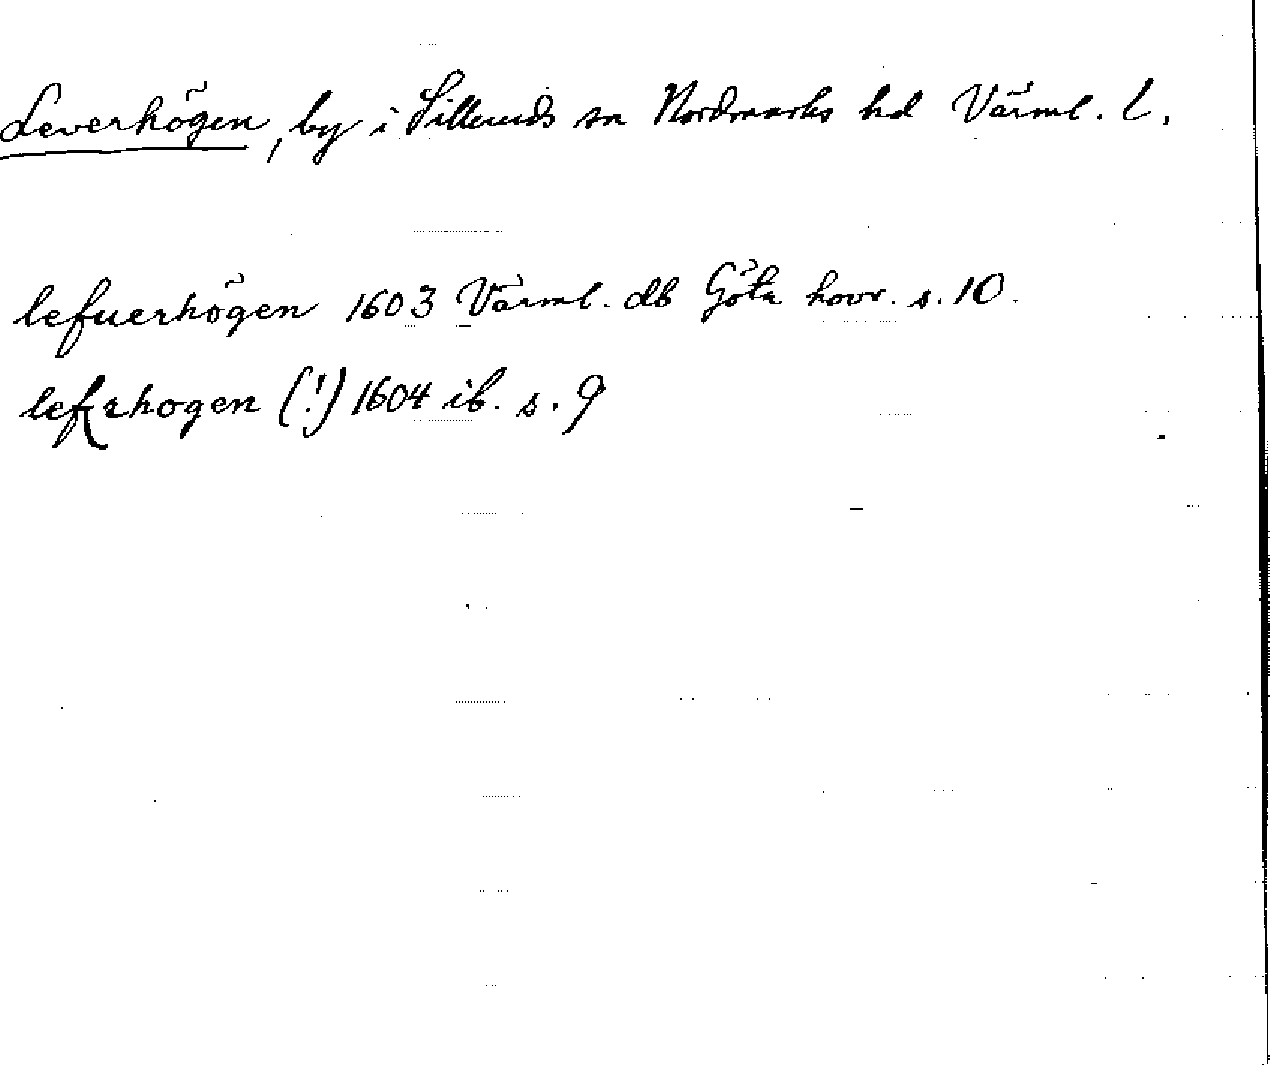 Leverhögen, by i Sillerud sn Nordmarks hd Värml. l.
lefuerhögen 1603 Värml. db Göta hovr. s. 10.
lefrhogen (!) 1604 ib. s. 9